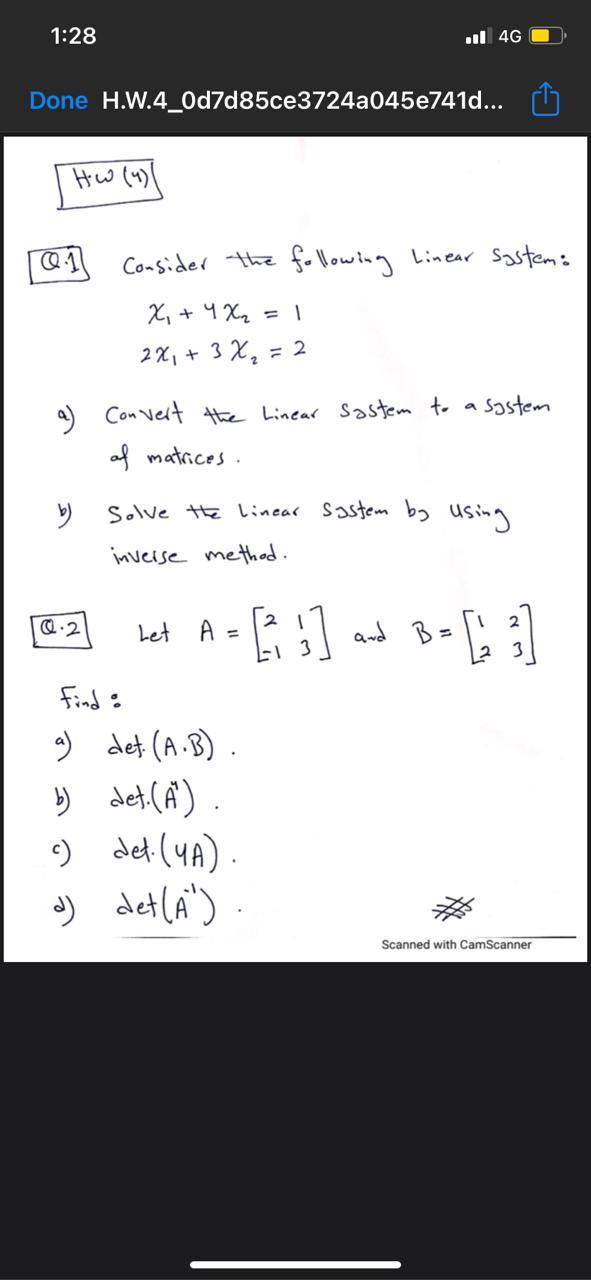 1:28 4G
Done H.W.4_0d7d85ce3724a045e741d...
H.W (4)
Q.1 Consider the following Linear System:
x₁ + 4x₂ = 1
2x₁ + 3x₂ = 2
a) Convert the Linear System to a system
of matrices.
b) Solve the Linear System by using
inverse method.
Q.2 Let A = [2 1; -1 3] and B = [1 2; 2 3]
Find:
a) det.(A.B).
b) det.(A⁴).
c) det.(4A).
d) det(A⁻¹).
Scanned with CamScanner